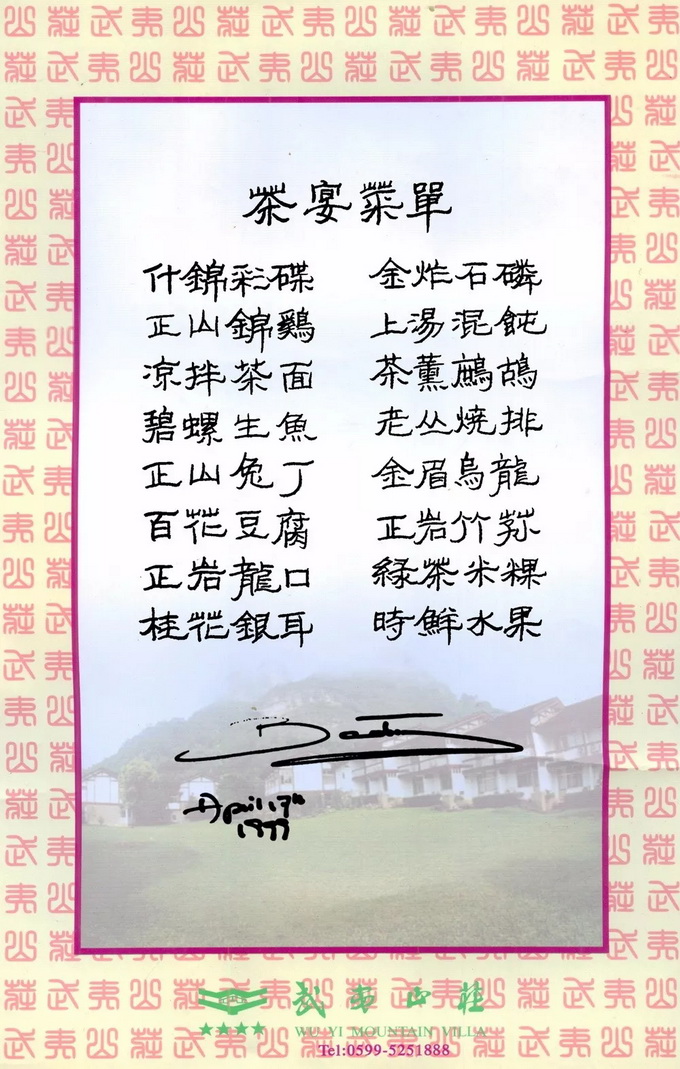 茶宴菜單
什錦彩碟
正山錦鷄
凉拌茶面
碧螺生魚
正山兔丁
百花豆腐
正岩龍口
桂花銀耳
金炸石磷
上湯混飩
茶薰鷓鴣
老丛燒排
金眉烏龍
正岩竹荪
綠茶米粿
時鮮水果
April 17th
1999
武夷山莊
WU YI MOUNTAIN VILLA
Tel:0599-5251888